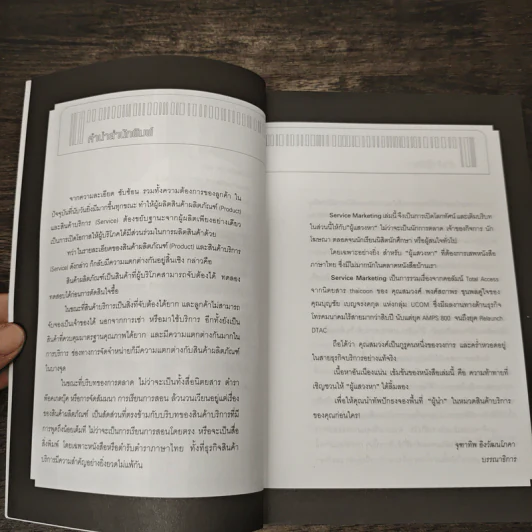 คำนำสำนักพิมพ์
จากความละเอียด ซับซ้อน รวมทั้งความต้องการของลูกค้า ใน
ปัจจุบันที่นับวันยิ่งมีมากขึ้นทุกขณะ ทำให้ผู้ผลิตสินค้าผลิตภัณฑ์ (Product)
และสินค้าบริการ (Service) ต้องขยับฐานะจากผู้ผลิตเพียงอย่างเดียว
เป็นการเปิดโอกาสให้ผู้บริโภคได้มีส่วนร่วมในการผลิตสินค้าด้วย
ทว่า ในรายละเอียดของสินค้าผลิตภัณฑ์ (Product) และสินค้าบริการ
(Service) ดังกล่าว ก็กลับมีความแตกต่างกันอยู่สิ้นเชิง กล่าวคือ
สินค้าผลิตภัณฑ์เป็นสินค้าที่ผู้บริโภคสามารถจับต้องได้ ทดลอง
ทดสอบได้ก่อนการตัดสินใจซื้อ
ในขณะที่สินค้าบริการเป็นสิ่งที่จับต้องได้ยาก และลูกค้าไม่สามารถ
จับจองเป็นเจ้าของได้ นอกจากการเช่า หรือมาใช้บริการ อีกทั้งยังเป็น
สินค้าที่ควบคุมมาตรฐานคุณภาพได้ยาก และมีความแตกต่างกันมากใน
การบริการ ช่องทางการจัดจำหน่ายก็มีความแตกต่างกับสินค้าผลิตภัณฑ์
ในบางจุด
ในขณะที่บริบทของการตลาด ไม่ว่าจะเป็นทั้งสื่อนิตยสาร ตำรา
พ็อคเกตบุ๊ค หรือการจัดสัมมนา การเรียนการสอน ล้วนวนเวียนอยู่แต่เรื่อง
ของสินค้าผลิตภัณฑ์ เป็นสัดส่วนที่ตรงข้ามกับบริบทของสินค้าบริการที่มี
การพูดถึงน้อยเต็มที ไม่ว่าจะเป็นการสอนโดยตรง หรือจะเป็นสื่อ
สิ่งพิมพ์ โดยเฉพาะหนังสือหรือตำรับตำราภาษาไทย ทั้งที่ธุรกิจสินค้า
บริการมีความสำคัญอย่างยิ่งยวดไม่แพ้กัน
Service Marketing เล่มนี้ จึงเป็นการเปิดโลกทัศน์ และเติมบริบท
ในส่วนนี้ให้กับ "ผู้แสวงหา" ไม่ว่าจะเป็นนักการตลาด เจ้าของกิจการ นัก
โฆษณา ตลอดจนนักเรียนนิสิตนักศึกษา หรือผู้สนใจทั่วไป
โดยเฉพาะอย่างยิ่ง สำหรับ "ผู้แสวงหา" ที่ต้องการเสพหนังสือ
ภาษาไทย ซึ่งมีไม่มากนักในตลาดหนังสือบ้านเรา
Service Marketing เป็นการรวมเรื่องจากคอลัมน์ Total Access
จากนิตยสาร thaicoon ของ คุณสมวงศ์ พงศ์สถาพร ขุนพลคู่ใจของ
คุณบุญชัย เบญจรงคกุล แห่งกลุ่ม UCOM ซึ่งมีผลงานทางด้านธุรกิจ
โทรคมนาคมไร้สายมากว่าสิบปี นับแต่ยุค AMPS 800 จนถึงยุค Relaunch
DTAC
ถือได้ว่า คุณสมวงศ์เป็นกูรูคนหนึ่งของวงการ และคร่ำหวอดอยู่
ในสายธุรกิจบริการอย่างแท้จริง
เนื้อหาอันเนืองแน่น เข้มข้นของหนังสือเล่มนี้ คือ ความท้าทายที่
เชิญชวนให้ "ผู้แสวงหา" ได้ลิ้มลอง
เพื่อให้คุณนำทัพปักธงจองพื้นที่ "ผู้นำ" ในหมวดสินค้าบริการ
ของคุณก่อนใคร!
จุฑาทิพ อิงวัฒนโภคา
บรรณาธิการ